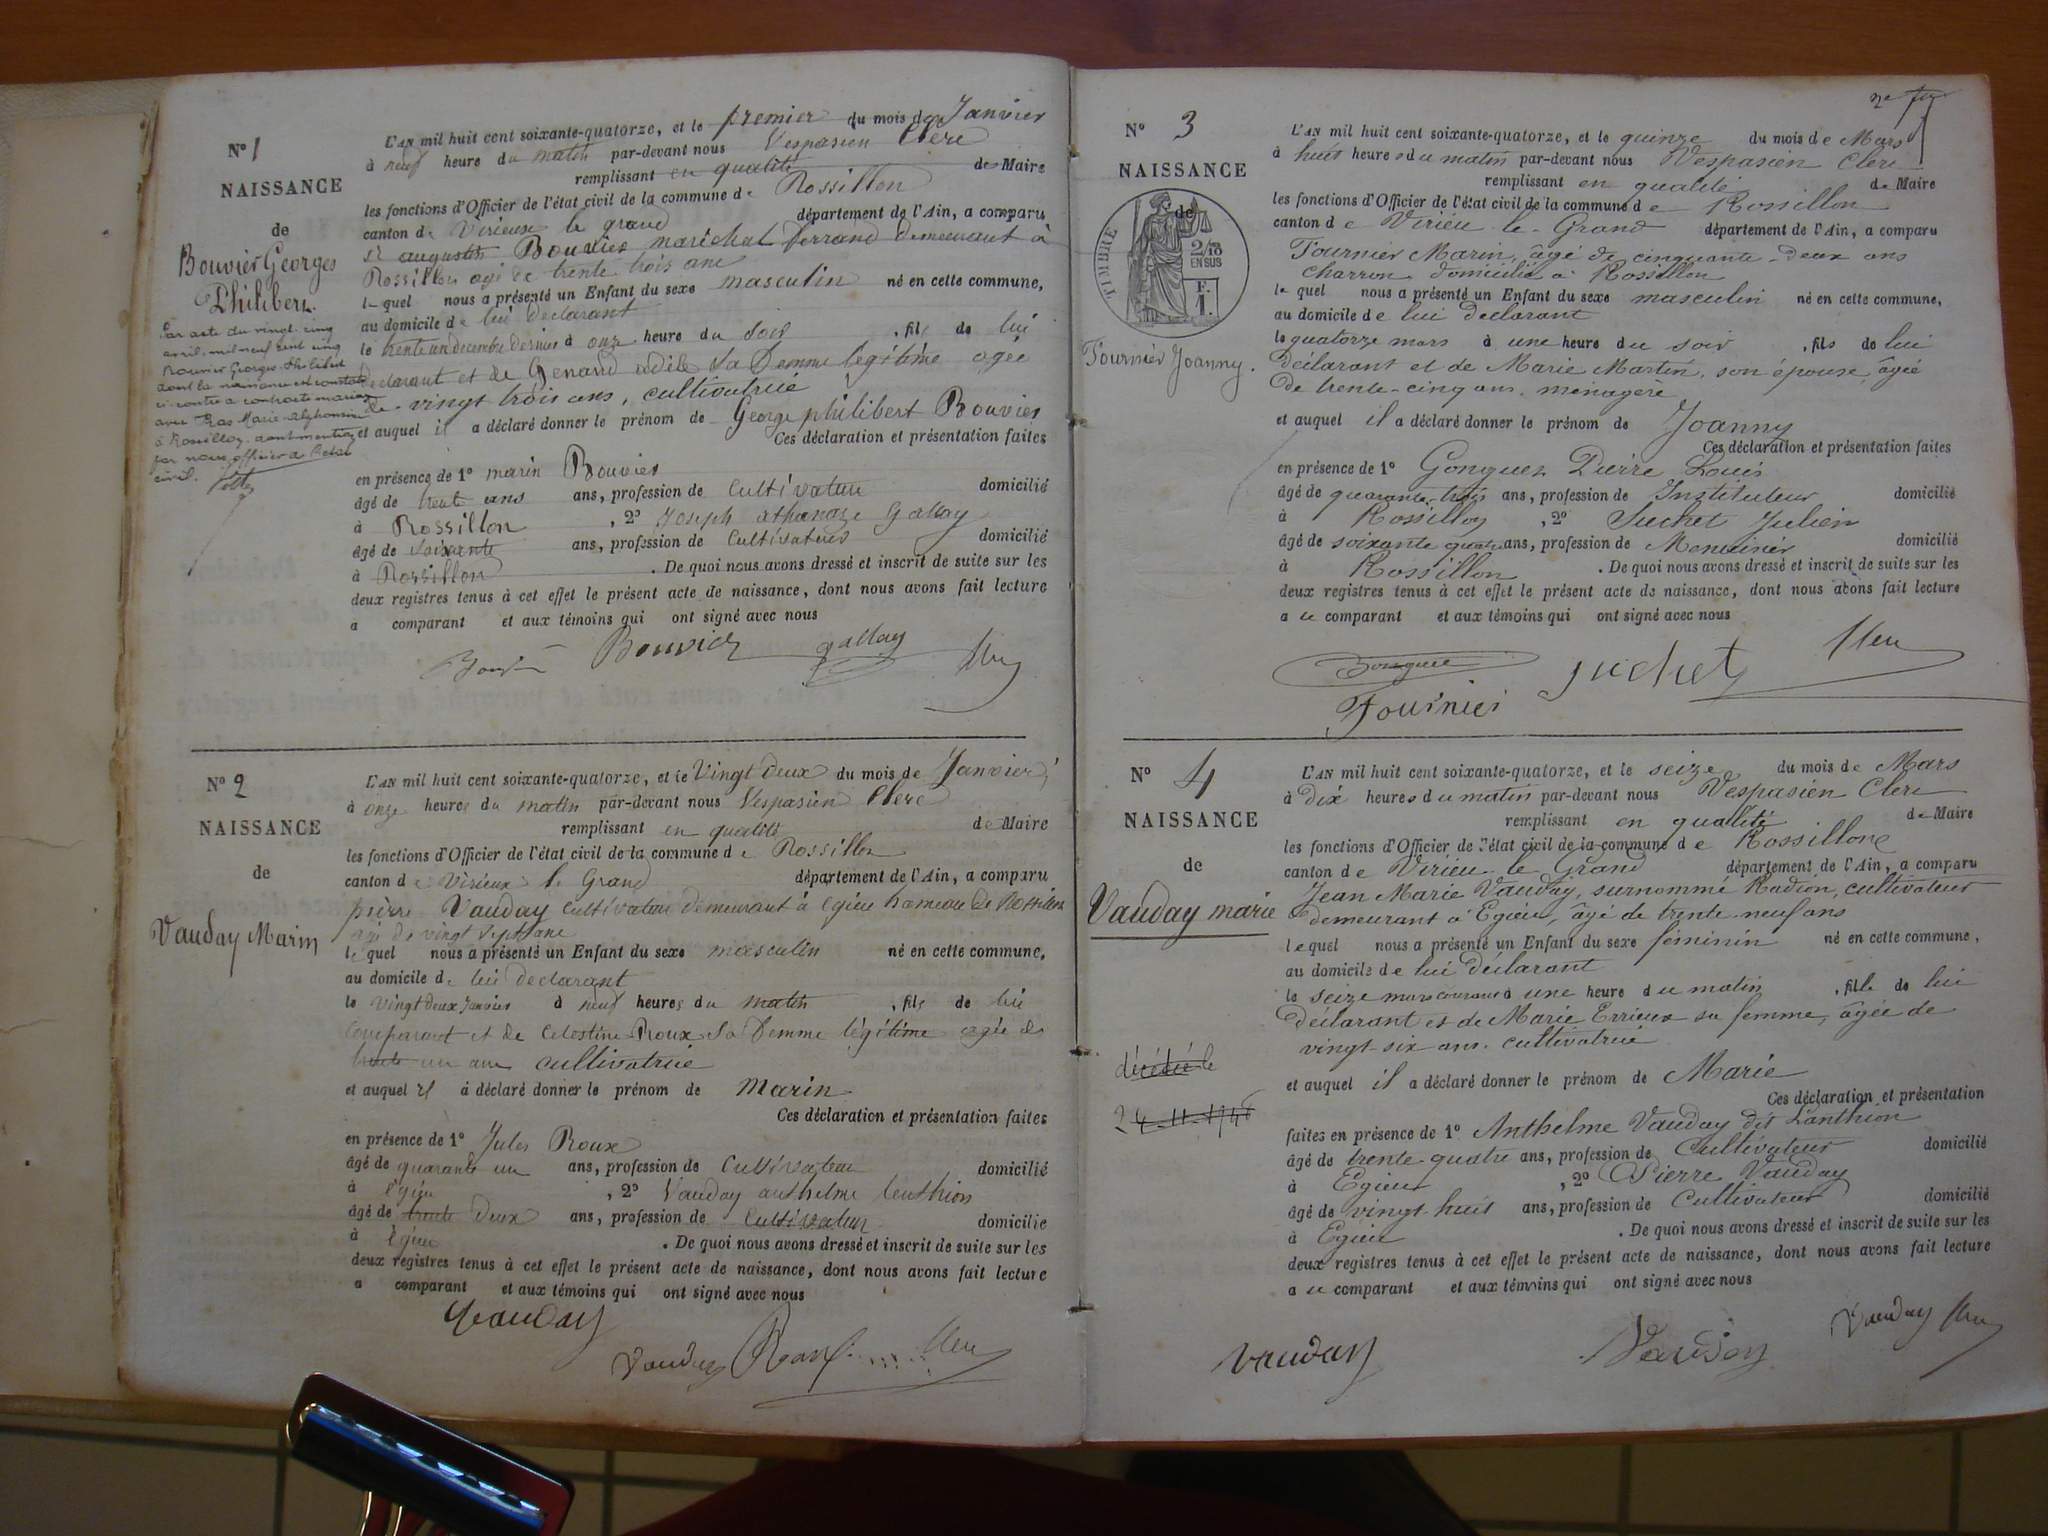 N° 1
NAISSANCE
de
Bouvier Georges
Philibert
Par acte du vingt-cinq
avril mil neuf cent cinq
Bouvier Georges Philibert
dont la naissance est constatée
ci-contre a contracté mariage
avec Gras Marie Alphonsine
à Rossillon. dont mention
par nous officier de l'état
civil.
L'AN mil huit cent soixante-quatorze, et le premier du mois de Janvier
à neuf heure du matin par-devant nous Vespasien Clerc
remplissant en qualité de Maire
les fonctions d'Officier de l'état civil de la commune de Rossillon
canton de Virieux le grand département de l'Ain, a comparu
sr augustin Bouvier maréchal ferrand demeurant à
Rossillon agé de trente trois ans
lequel nous a présenté un Enfant du sexe masculin né en cette commune,
au domicile de lui déclarant
le trente un decembre dernier à onze heure du soir , fils de lui
declarant et de Genand adèle sa femme legitime agée
de vingt trois ans, cultivatrice
et auquel il a déclaré donner le prénom de George philibert Bouvier
Ces déclaration et présentation faites
en présence de 1° marin Bouvier
âgé de trente ans ans, profession de Cultivateur domicilié
à Rossillon , 2° Joseph athanaze Gallay
âgé de soixante ans, profession de Cultivateur domicilié
à Rossillon . De quoi nous avons dressé et inscrit de suite sur les
deux registres tenus à cet effet le présent acte de naissance, dont nous avons fait lecture
a comparant et aux témoins qui ont signé avec nous
Bouvier Gallay
N° 2
NAISSANCE
de
Vauday Marin
L'AN mil huit cent soixante-quatorze, et le Vingt deux du mois de Janvier
à onze heures du matin par-devant nous Vespasien Clerc
remplissant en qualité de Maire
les fonctions d'Officier de l'état civil de la commune de Rossillon
canton de Virieux le Grand département de l'Ain, a comparu
pierre Vauday cultivateur demeurant à Egieu hameau de Rossillon
agé de vingt sept ans
lequel nous a présenté un Enfant du sexe masculin né en cette commune,
au domicile de lui declarant
le vingt deux Janvier à neuf heures du matin , fils de lui
comparant et de Celestine Roux sa femme légitime agée de
trente un ans cultivatrice
et auquel il a déclaré donner le prénom de Marin
Ces déclaration et présentation faites
en présence de 1° Jules Roux
âgé de quarante un ans, profession de Cultivateur domicilié
à Egieu , 2° Vauday anthelme lenthion
âgé de trente deux ans, profession de Cultivateur domicilié
à Egieu . De quoi nous avons dressé et inscrit de suite sur les
deux registres tenus à cet effet le présent acte de naissance, dont nous avons fait lecture
a comparant et aux témoins qui ont signé avec nous
Vauday
Vauday Roux Clerc
N° 3
NAISSANCE
de
TIMBRE
2/10
EN SUS
F.
1.
Fournier Joanny.
L'AN mil huit cent soixante-quatorze, et le quinze du mois de Mars
à huit heures du matin par-devant nous Vespasien Clerc
remplissant en qualité de Maire
les fonctions d'Officier de l'état civil de la commune de Rossillon
canton de Virieu-le-Grand département de l'Ain, a comparu
Fournier Marin, âgé de cinquante-deux ans
charron domicilié à Rossillon
lequel nous a présenté un Enfant du sexe masculin né en cette commune,
au domicile de lui déclarant
le quatorze mars à une heure du soir , fils de lui
déclarant et de Marie Martin, son épouse, âgée
de trente-cinq ans, ménagère
et auquel il a déclaré donner le prénom de Joanny
Ces déclaration et présentation faites
en présence de 1° Gonguez Pierre Louis
âgé de quarante-trois ans, profession de Instituteur domicilié
à Rossillon , 2° Suchet Julien
âgé de soixante quatre ans, profession de Menuisier domicilié
à Rossillon . De quoi nous avons dressé et inscrit de suite sur les
deux registres tenus à cet effet le présent acte de naissance, dont nous avons fait lecture
a ce comparant et aux témoins qui ont signé avec nous
Suchet Clerc
Fournier
N° 4
NAISSANCE
de
Vauday marie
décédée le
L'AN mil huit cent soixante-quatorze, et le seize du mois de Mars
à dix heures du matin par-devant nous Vespasien Clerc
remplissant en qualité de Maire
les fonctions d'Officier de l'état civil de la commune de Rossillon
canton de Virieu le Grand département de l'Ain, a comparu
Jean Marie Vauday, surnommé Radion, cultivateur
demeurant à Egieu, âgé de trente-neuf ans
lequel nous a présenté un Enfant du sexe féminin né en cette commune,
au domicile de lui déclarant
le seize mars courant à une heure du matin , fille de lui
déclarant et de Marie Errieux sa femme, âgée de
vingt-six ans. cultivatrice
et auquel il a déclaré donner le prénom de Marie
Ces déclaration et présentation
faites en présence de 1° Anthelme Vauday dit Lanthion
âgé de trente-quatre ans, profession de Cultivateur domicilié
à Egieu , 2° Pierre Vauday
âgé de vingt-huit ans, profession de Cultivateur domicilié
à Egieu . De quoi nous avons dressé et inscrit de suite sur les
deux registres tenus à cet effet le présent acte de naissance, dont nous avons fait lecture
a ce comparant et aux témoins qui ont signé avec nous
Vauday Vauday Vauday Clerc